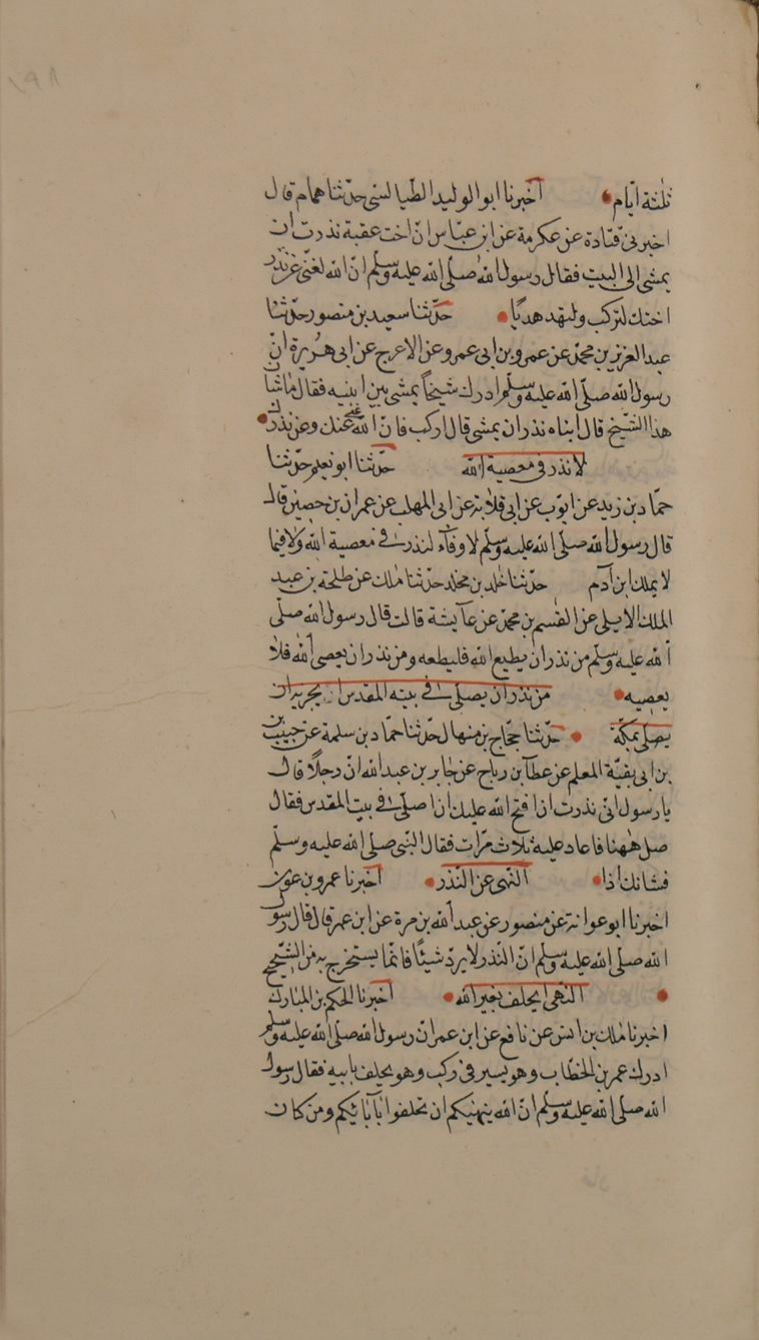 ثلثة ايام اخبرنا ابو الوليد الطيالسي حدثنا همام قال
اخبرني قتادة عن عكرمة عن ابن عباس ان اخت عقبة نذرت ان
يمشي الى البيت فقال رسول الله صلى الله عليه وسلم ان الله لغني عن نذر
اختك لتركب ولتهد هديا حدثنا سعيد بن منصور حدثنا
عبد العزيز بن محمد عن عمرو بن ابي عمرو عن الاعرج عن ابي هريرة ان
رسول الله صلى الله عليه وسلم ادرك شيخا يمشي بين ابنيه فقال ما شان
هذا الشيخ قال ابناه نذر ان يمشي قال اركب فان الله غني عنك وعن نذرك
لا نذر في معصية الله حدثنا ابو نعيم حدثنا
حماد بن زيد عن ايوب عن ابي قلابة عن ابي المهلب عن عمران بن حصين قال
قال رسول الله صلى الله عليه وسلم لا وفاء لنذر في معصية الله ولا فيما
لا يملك ابن آدم حدثنا خلد بن مخلد حدثنا ملك عن طلحة بن عبد
الملك الايلي عن القسم بن محمد عن عايشة قالت قال رسول الله صلى
الله عليه وسلم من نذر ان يطيع الله فليطعه ومن نذر ان يعصي الله فلا
يعصيه من نذر ان يصلي في بيت المقدس ايجزيه ان
يصلي بمكة حدثنا حجاج بن منهال حدثنا حماد بن سلمة عن حبيب
بن ابي بقية المعلم عن عطا بن رباح عن جابر بن عبد الله ان رجلا قال
يا رسول اني نذرت ان افتح الله عليك ان اصلي في بيت المقدس فقال
صل ههنا فاعاد عليه ثلاث مرات فقال النبي صلى الله عليه وسلم
فشانك اذا النهي عن النذر اخبرنا عمرو بن عون
اخبرنا ابو عوانة عن منصور عن عبد الله بن مرة عن ابن عمر قال قال رسول
الله صلى الله عليه وسلم ان النذر لا يرد شيئا فانما يستخرج به من الشحيح
النهي ايحلف بغير الله اخبرنا الحكم بن المبارك
اخبرنا ملك بن انس عن نافع عن ابن عمر ان رسول الله صلى الله عليه وسلم
ادرك عمر بن الخطاب وهو يسير في ركب وهو يحلف بابيه فقال رسول
الله صلى الله عليه وسلم ان الله ينهيكم ان تحلفوا بآبائكم ومن كان